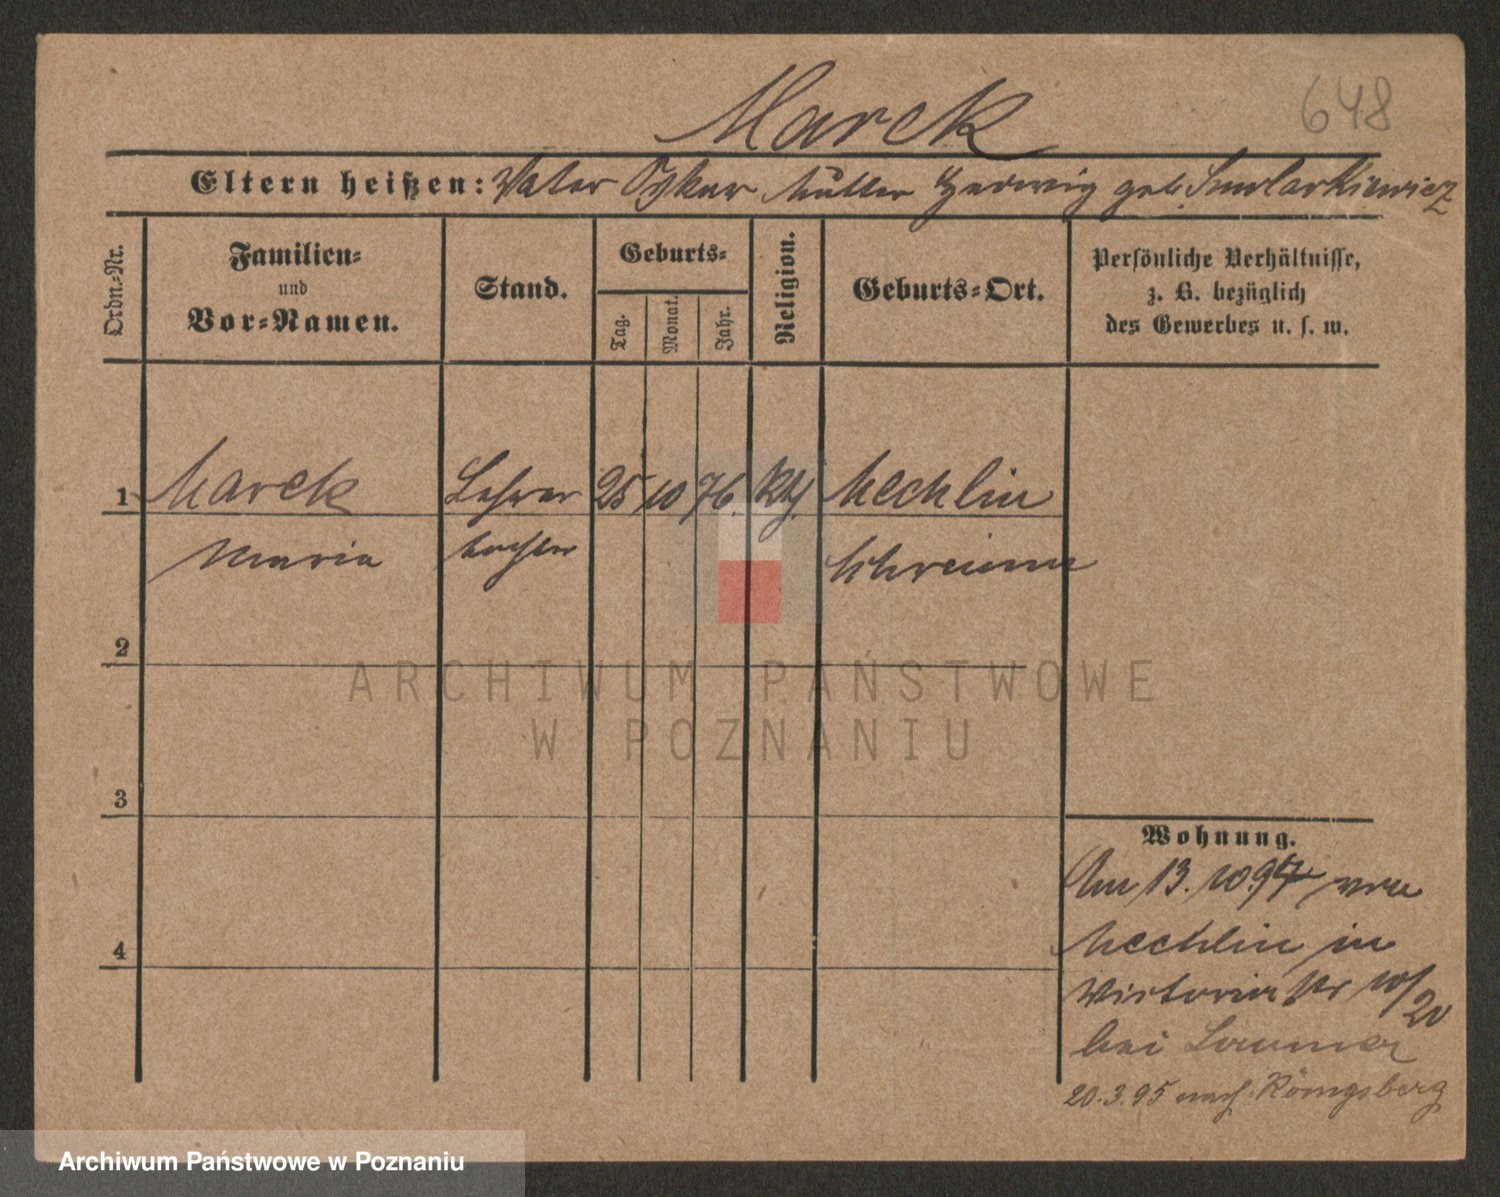 Marek
648
Eltern heißen: Vater Oskar Mutter Hedwig geb. Smolarkiewicz
Ordn.-Nr.
Familien-
und
Vor-Namen.
Stand.
Geburts-
Tag.
Monat.
Jahr.
Religion.
Geburts-Ort.
Persönliche Verhältnisse,
z. B. bezüglich
des Gewerbes u. s. w.
1 Marek Lehrer 25 10 76. kth. Mechlin
Maria tochter Schrimm
2
ARCHIWUM PAŃSTWOWE
W POZNANIU
3
Wohnung.
Am 13. 10. 94 von
4 Mechlin in
Victoria str 10/20
bei
20.3.95 nach Königsberg
Archiwum Państwowe w Poznaniu